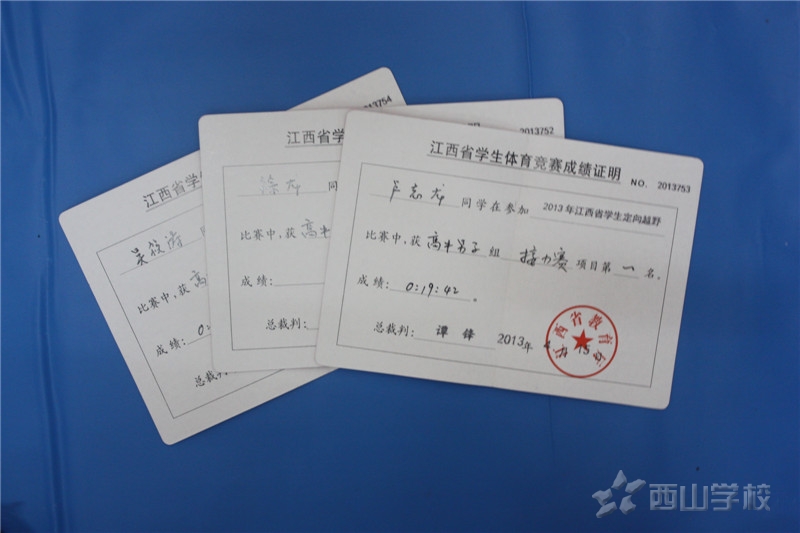 江西省学
2013754
吴
比赛中,获高
成绩:0:
总裁判:
江西省学
NO. 2013752
涂龙 同
比赛中,获高中
成绩:
总裁判:
江西省学生体育竞赛成绩证明
NO. 2013753
卢志龙 同学在参加 2013年江西省学生定向越野
比赛中,获高中男子组 接力赛 项目第一名。
成绩:0:19:42。
总裁判:谭锋 2013年
江西省教育厅
西山学校